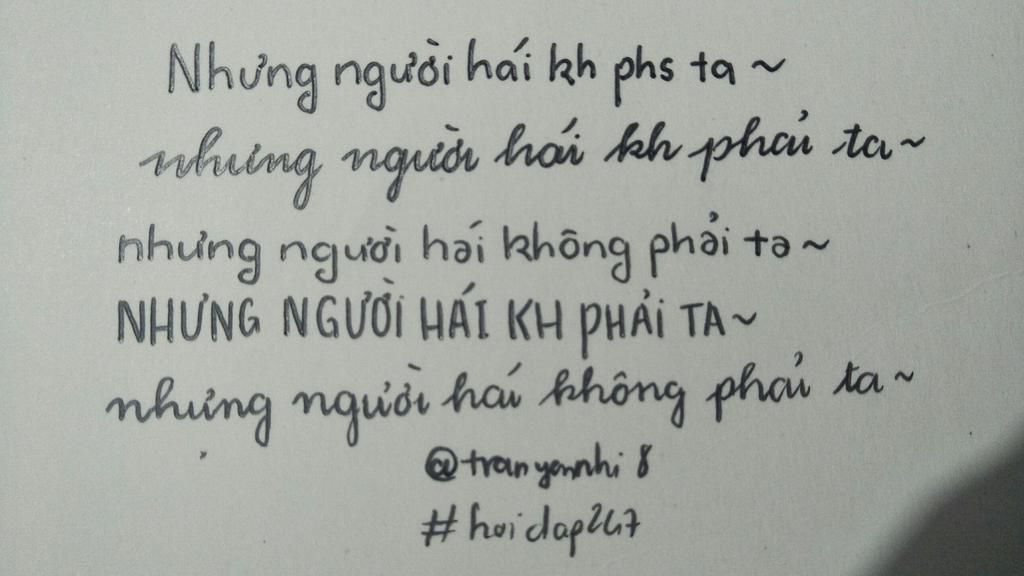 Nhưng người hái kh phs ta ~
nhưng người hái kh phải ta ~
nhưng người hái không phải ta ~
NHƯNG NGƯỜI HÁI KH PHẢI TA ~
nhưng người hái không phải ta ~
@tranyennhi8
#hoidap247